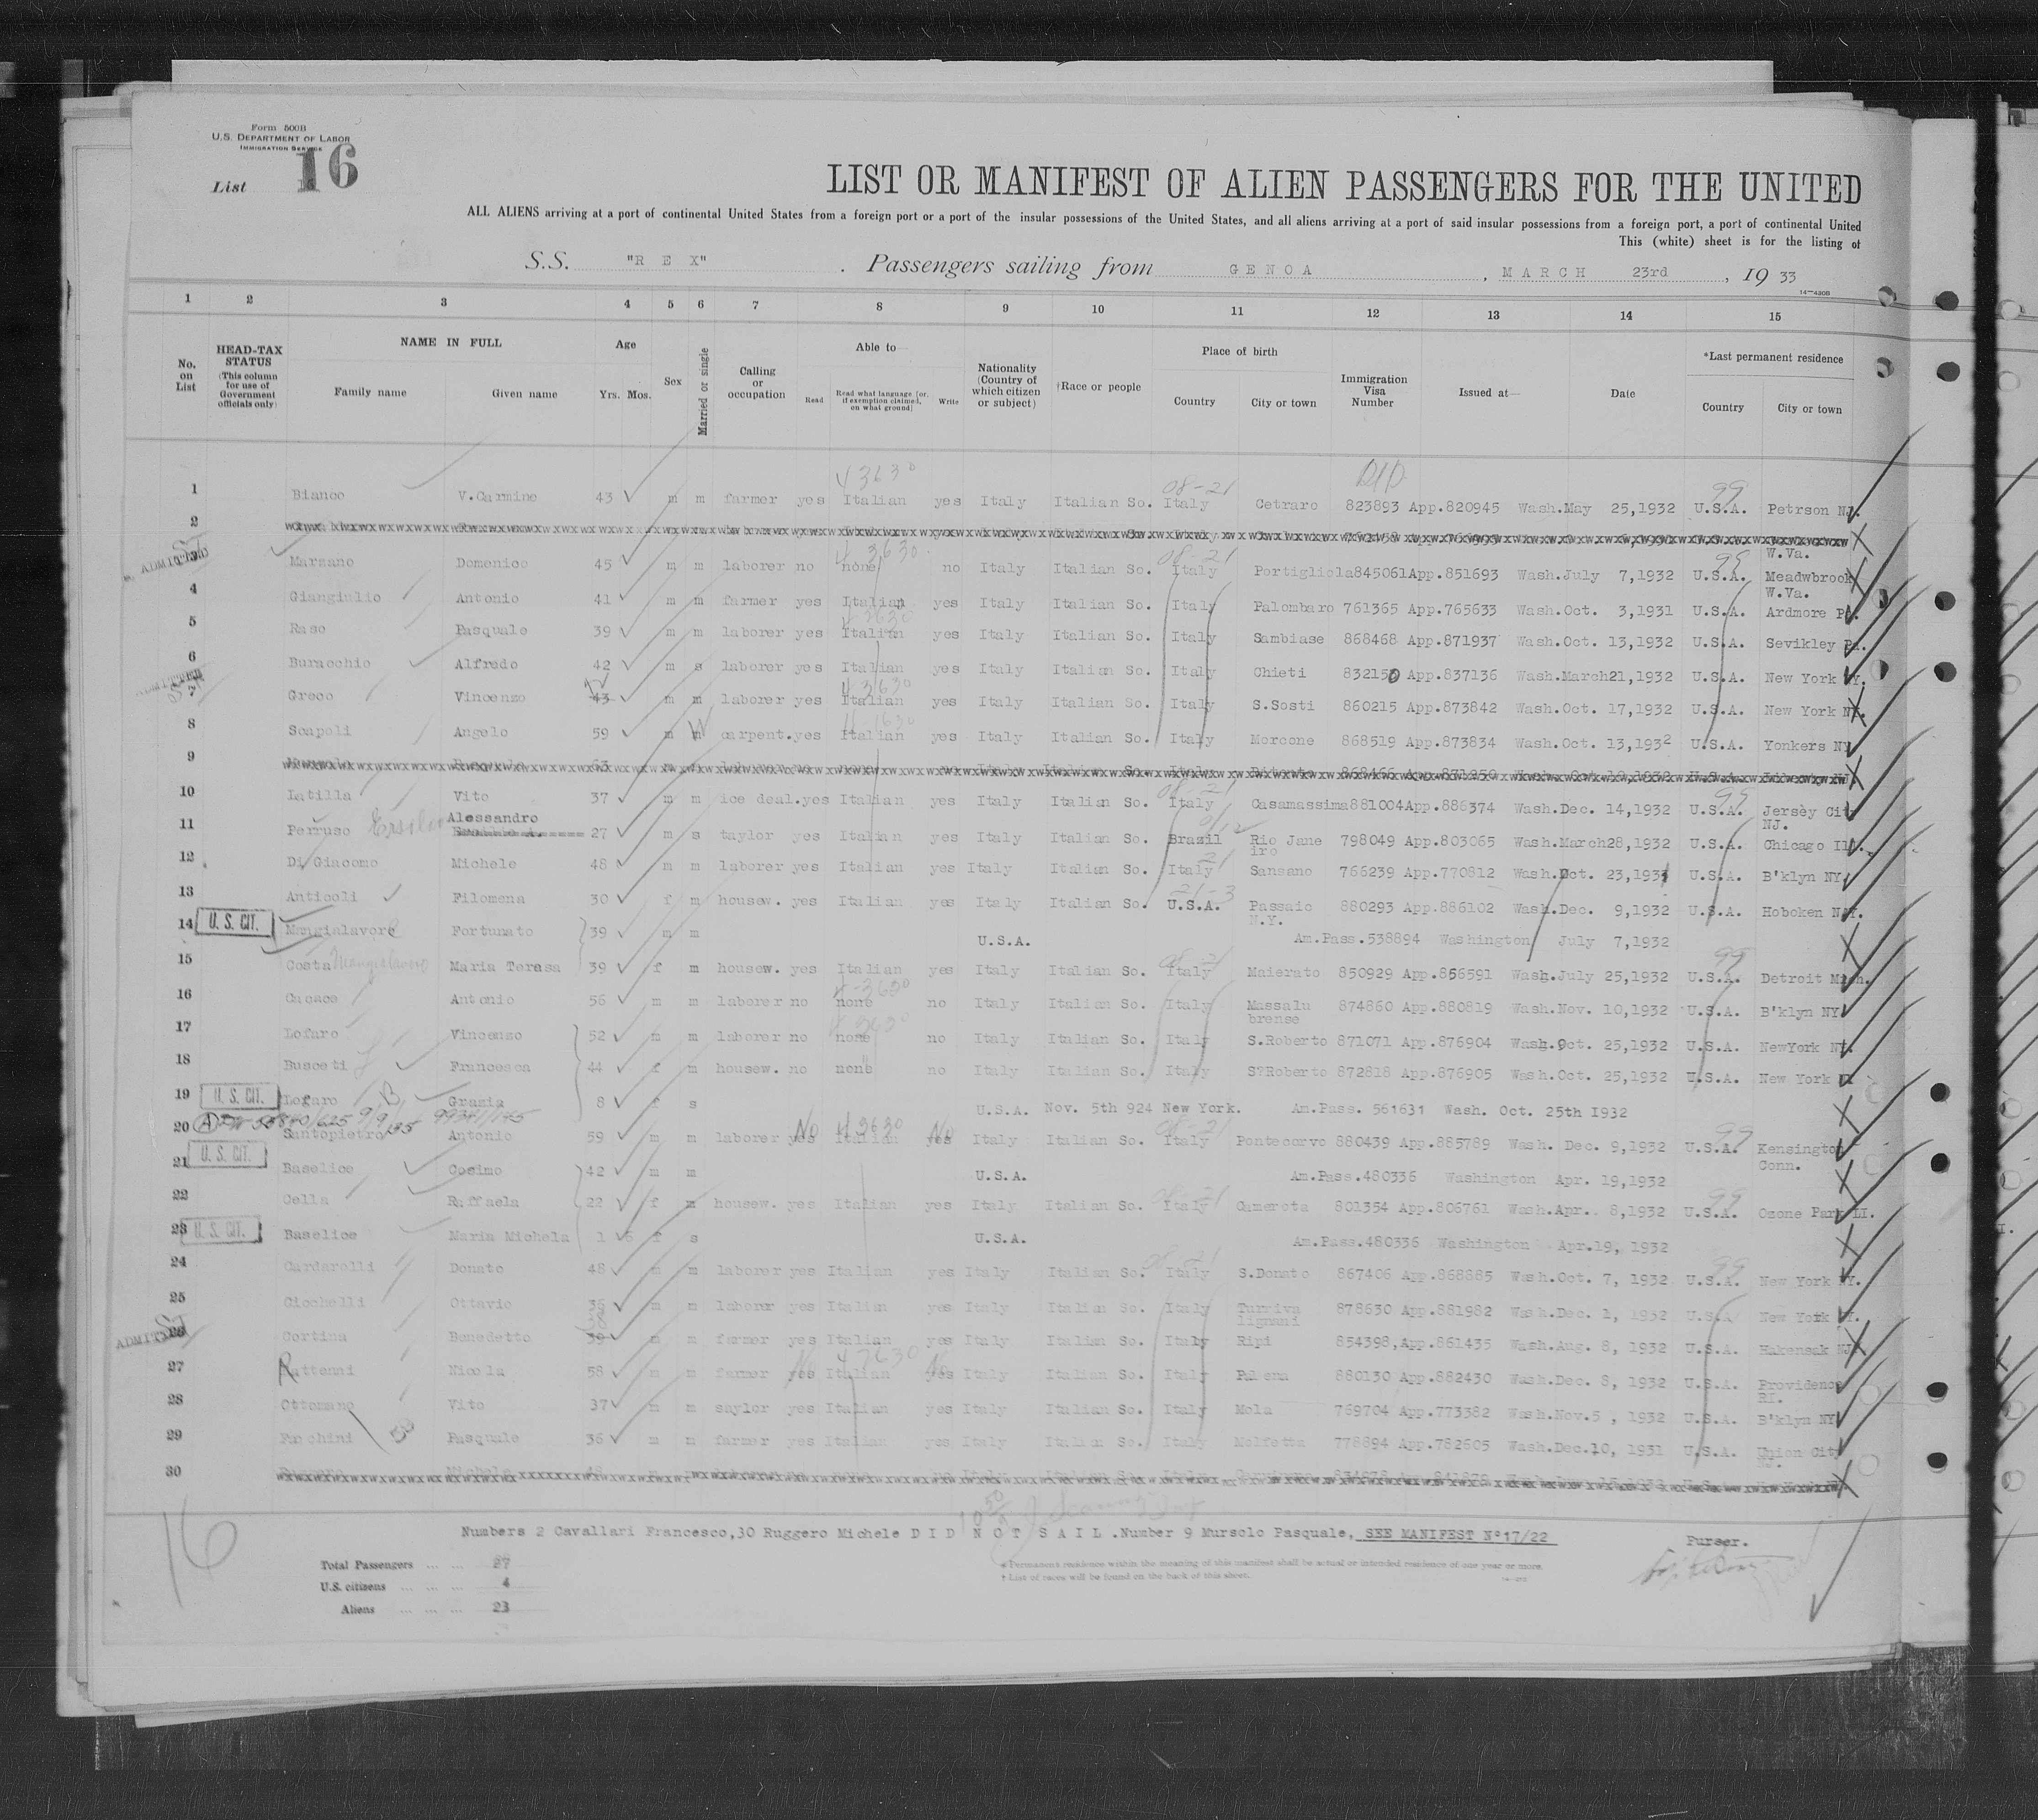 Form 500B
U.S. DEPARTMENT OF LABOR
IMMIGRATION SERVICE
List 16
LIST OR MANIFEST OF ALIEN PASSENGERS FOR THE UNITED
ALL ALIENS arriving at a port of continental United States from a foreign port or a port of the insular possessions of the United States, and all aliens arriving at a port of said insular possessions from a foreign port, a port of continental United
This (white) sheet is for the listing of
S.S. "R E X" . Passengers sailing from G E N O A , M A R C H 23rd , 19 33
14—420B
1 2 3 4 5 6 7 8 9 10 11 12 13 14 15
No. on List
HEAD-TAX STATUS (This column for use of Government officials only)
NAME IN FULL
Family name Given name
Age
Yrs. Mos.
Sex
Married or single
Calling or occupation
Able to—
Read Read what language [or, if exemption claimed, on what ground] Write
Nationality (Country of which citizen or subject)
†Race or people
Place of birth
Country City or town
Immigration Visa Number
Issued at—
Date
*Last permanent residence
Country City or town
43630 08-21 99
1 Bianco V.Carmine 43 m m farmer yes Italian yes Italy Italian So. Italy Cetraro 823893 App.820945 Wash.May 25,1932 U.S.A. Petrson NJ.
2
W.Va.
ADMITTED 3 Marzano Domenico 45 m m laborer no none no Italy Italian So. Italy Portigliola 845061 App.851693 Wash.July 7,1932 U.S.A. Meadwbrook
W.Va.
4 Giangiulio Antonio 41 m m farmer yes Italian yes Italy Italian So. Italy Palombaro 761365 App.765633 Wash.Oct. 3,1931 U.S.A. Ardmore Pa.
5 Raso Pasquale 39 m m laborer yes Italian yes Italy Italian So. Italy Sambiase 868468 App.871937 Wash.Oct. 13,1932 U.S.A. Sevikley Pa.
6 Buracchio Alfredo 42 m s laborer yes Italian yes Italy Italian So. Italy Chieti 832150 App.837136 Wash.March21,1932 U.S.A. New York NY.
ADMITTED 7 Greco Vincenzo 43 m m laborer yes Italian yes Italy Italian So. Italy S.Sosti 860215 App.873842 Wash.Oct. 17,1932 U.S.A. New York NY.
8 Scapoli Angelo 59 m W carpent. yes Italian yes Italy Italian So. Italy Morcone 868519 App.873834 Wash.Oct. 13,1932 U.S.A. Yonkers NY
9
10 Latilla Vito 37 m m ice deal. yes Italian yes Italy Italian So. Italy Casamassima 881004 App.886374 Wash.Dec. 14,1932 U.S.A. Jersèy City
NJ.
Alessandro
11 Perruso Ersilio 27 m s taylor yes Italian yes Italy Italian So. Brazil Rio Jane 798049 App.803065 Wash.March28,1932 U.S.A. Chicago Ill.
iro
12 Di Giacomo Michele 48 m m laborer yes Italian yes Italy Italian So. Italy Sansano 766239 App.770812 Wash.Oct. 23,1931 U.S.A. B'klyn NY.
13 Anticoli Filomena 30 f m housew. yes Italian yes Italy Italian So. U.S.A. Passaic 880293 App.886102 Wash.Dec. 9,1932 U.S.A. Hoboken N.Y.
N.Y.
14 U. S. CIT. Mangialavore Fortunato 39 m m U.S.A. Am.Pass.538894 Washington July 7,1932
15 Costa Mangialavore Maria Teresa 39 f m housew. yes Italian yes Italy Italian So. Italy Maierato 850929 App.856591 Wash.July 25,1932 U.S.A. Detroit Mich.
16 Cacace Antonio 56 m m laborer no none no Italy Italian So. Italy Massalu 874860 App.880819 Wash.Nov. 10,1932 U.S.A. B'klyn NY
brense
17 Lofaro Vincenzo 52 m m laborer no none no Italy Italian So. Italy S.Roberto 871071 App.876904 Wash.Oct. 25,1932 U.S.A. NewYork NY.
18 Busceti Francesca 44 f m housew. no none no Italy Italian So. Italy S?Roberto 872818 App.876905 Wash.Oct. 25,1932 U.S.A. New York
19 U. S. CIT. Lofaro Grazia 8 f s U.S.A. Nov. 5th 924 New York. Am.Pass. 561631 Wash. Oct. 25th I932
20 Santopietro Antonio 59 m m laborer yes No Italian yes No Italy Italian So. Italy Pontecorvo 880439 App.885789 Wash. Dec. 9,1932 U.S.A. Kensington
Conn.
21 U. S. CIT. Baselice Cosimo 42 m m U.S.A. Am.Pass.480336 Washington Apr. 19,1932
22 Cella Raffaela 22 f m housew. yes Italian yes Italy Italian So. Italy Camerota 801354 App.806761 Wash.Apr. 8,1932 U.S.A. Ozone Park LI.
23 U. S. CIT. Baselice Maria Michela 1 6 f s U.S.A. Am.Pass.480336 Washington Apr.19, 1932
24 Cardarelli Donato 48 m m laborer yes Italian yes Italy Italian So. Italy S.Donato 867406 App.868885 Wash.Oct. 7, 1932 U.S.A. New York NY.
25 Cicchelli Ottavio 36 m m laborer yes Italian yes Italy Italian So. Italy Turriva 878630 App.881982 Wash.Dec. 1, 1932 U.S.A. New York NY.
lignani
ADMITTED 26 Cortina Benedetto 39 m m farmer yes Italian yes Italy Italian So. Italy Ripi 854398,App.861435 Wash.Aug. 8, 1932 U.S.A. Hakensak NJ
27 Rattenni Nicola 58 m m farmer yes Italian yes Italy Italian So. Italy Palena 880130 App.882430 Wash.Dec. 8, 1932 U.S.A. Providence
RI.
28 Ottomano Vito 37 m m saylor yes Italian yes Italy Italian So. Italy Mola 769704 App.773382 Wash.Nov.5 , 1932 U.S.A. B'klyn NY
29 Facchini Pasquale 36 m m farmer yes Italian yes Italy Italian So. Italy Molfetta 778894 App.782605 Wash.Dec.10, 1931 U.S.A. Union City
30
16
Numbers 2 Cavallari Francesco,30 Ruggero Michele D I D N O T S A I L .Number 9 Mursolo Pasquale, SEE MANIFEST N°17/22
Purser.
Total Passengers ... ... 27
U.S. citizens ... ... 4
Aliens ... ... ... 23
* Permanent residence within the meaning of this manifest shall be actual or intended residence of one year or more.
† List of races will be found on the back of this sheet.